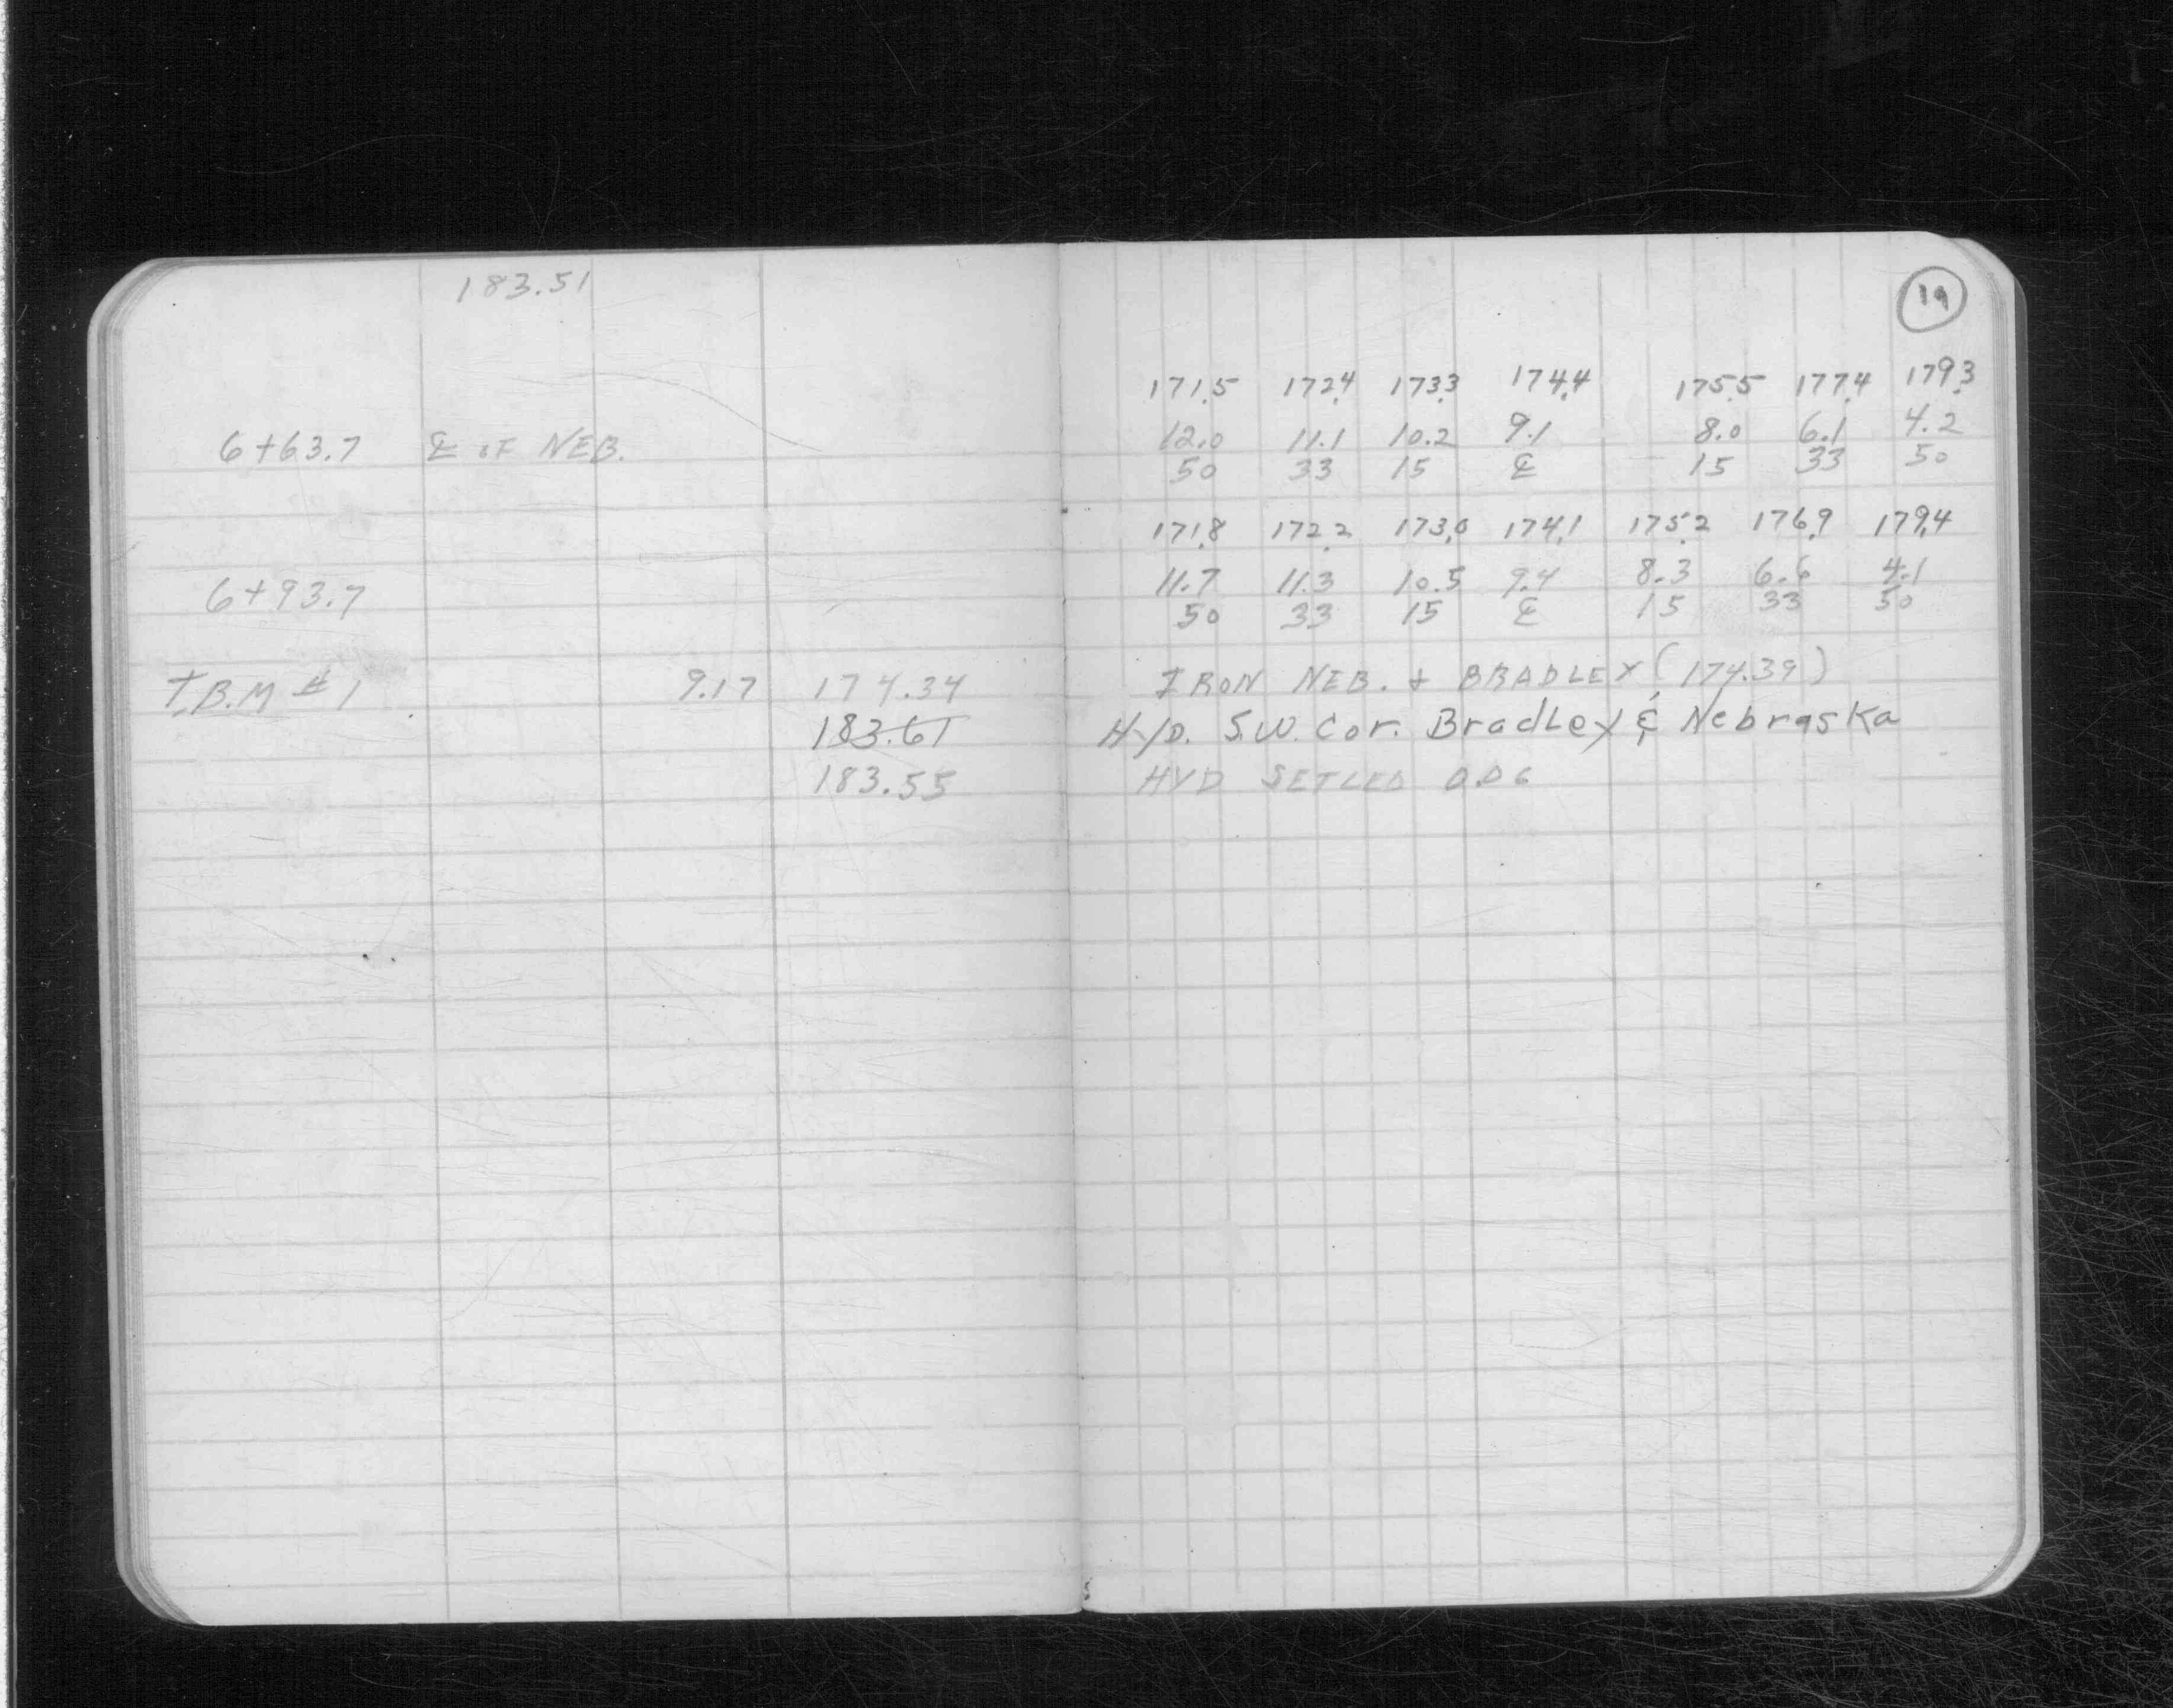 183.51
19
171.5 172.4 173.3 174.4 175.5 177.4 179.3
6+63.7 ℄ OF NEB. 12.0 11.1 10.2 9.1 8.0 6.1 4.2
50 33 15 ℄ 15 33 50
171.8 172.2 173.0 174.1 175.2 176.9 179.4
6+93.7 11.7 11.3 10.5 9.4 8.3 6.6 4.1
50 33 15 ℄ 15 33 50
T.B.M # 1 9.17 174.34 IRON NEB. & BRADLEY (174.39)
183.61 Hyd. S.W. Cor. Bradley & Nebraska
183.55 HYD SETLED 0.06